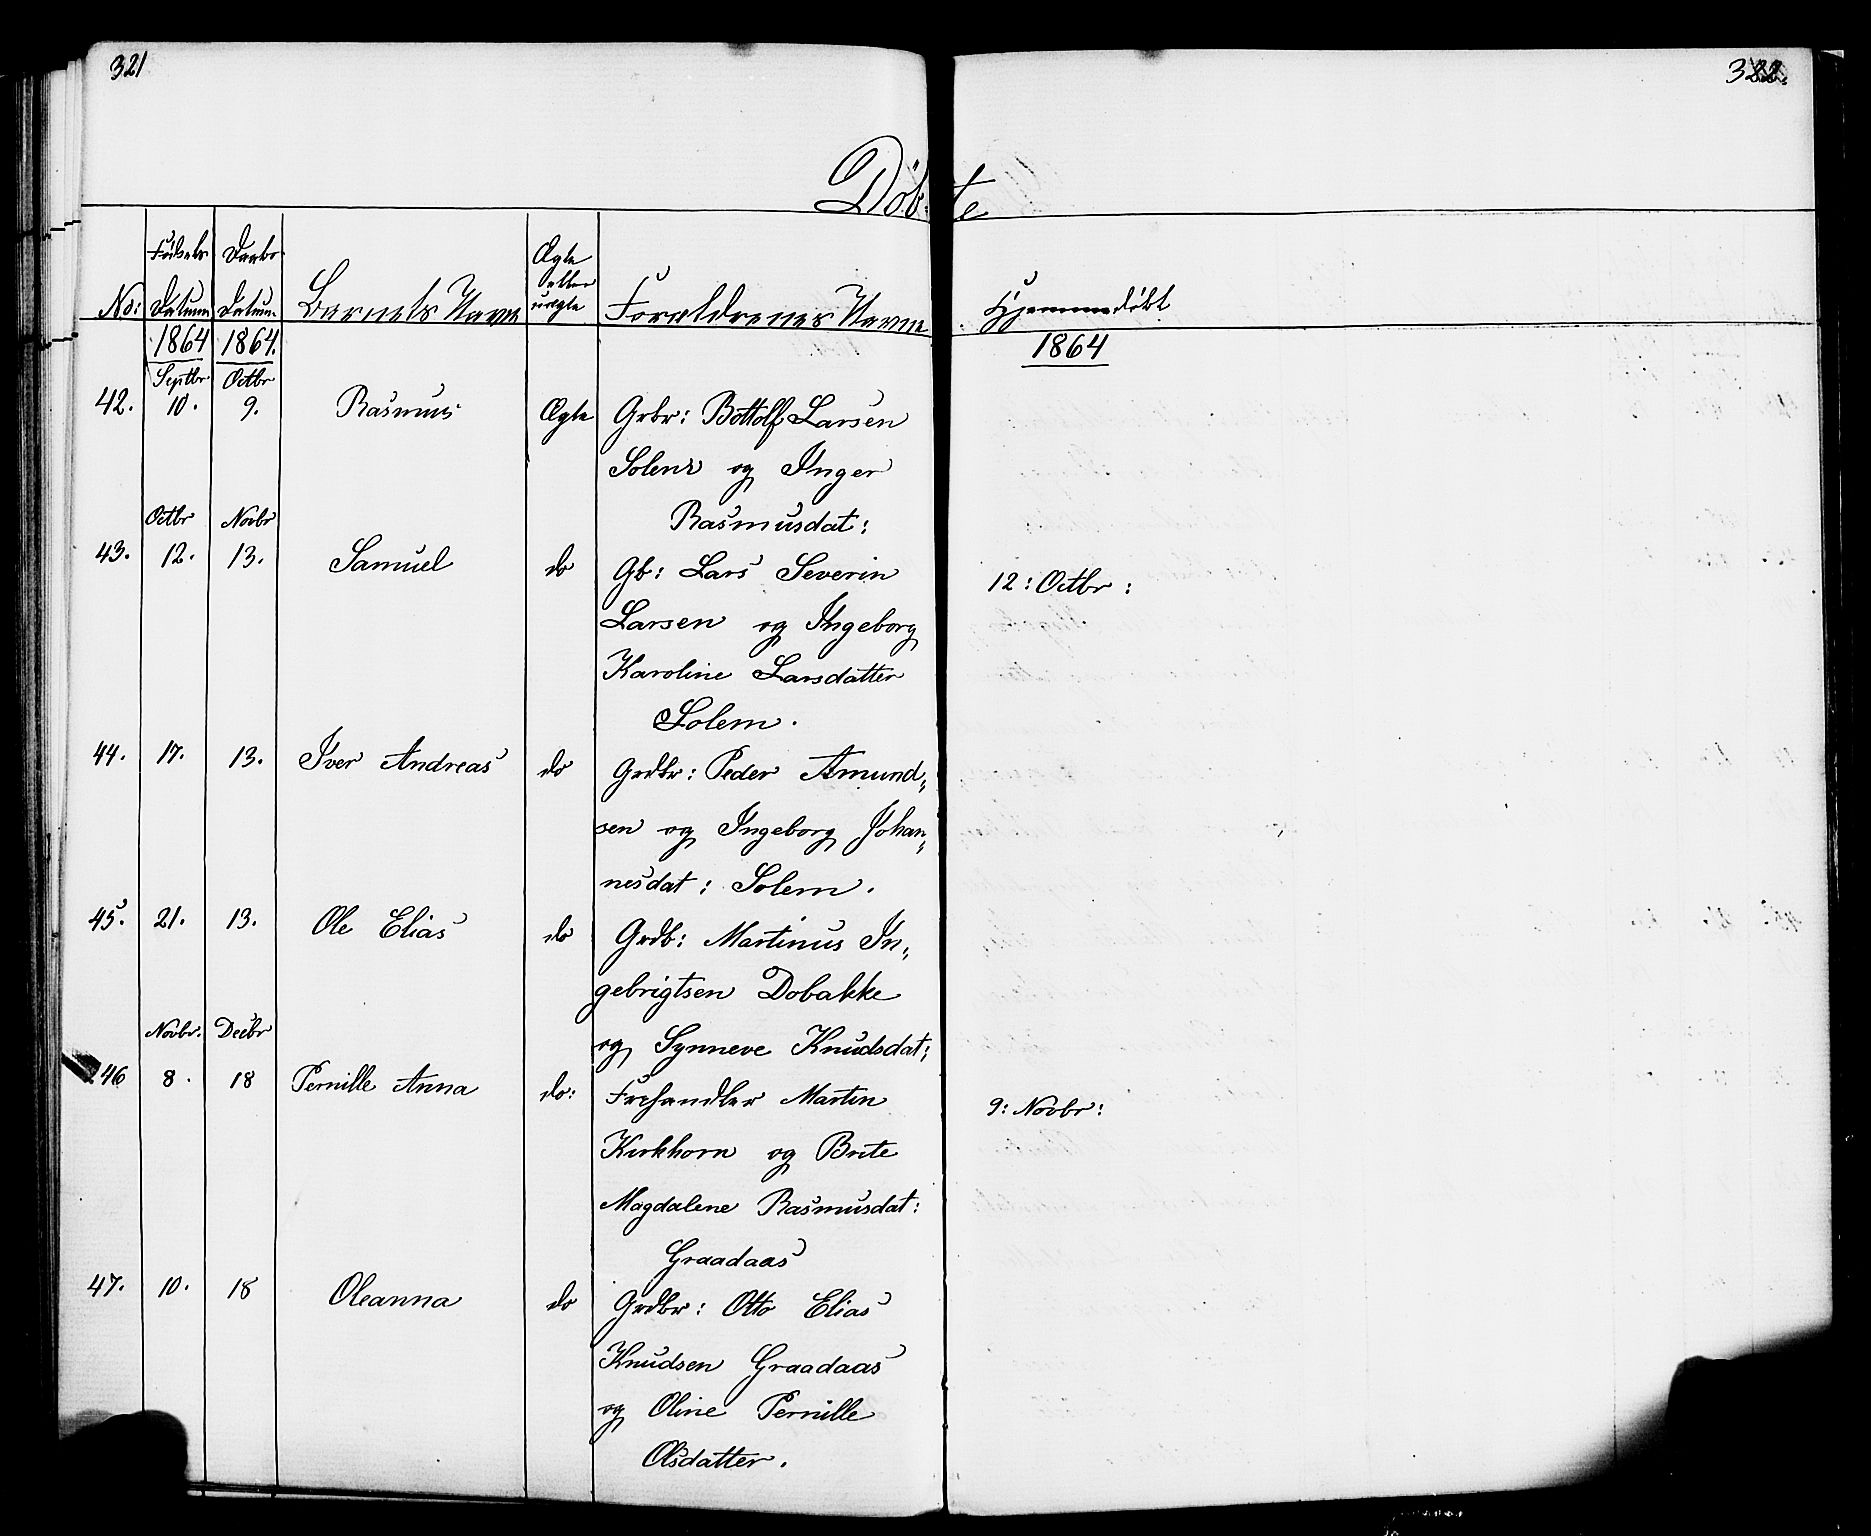 321
322.
Döbte
No:
Födsels Datum
Daabs Datum
Barnets Navn
Ægte eller uægte
Forældrenes Navne
Hjemmedöbt
1864 1864. 1864
Septbr Octbr
42. 10. 9. Rasmus Ægte Grbr: Bottolf Larsen
Solem og Inger
Rasmusdat:
Octbr Novbr
43. 12. 13. Samuel do Gb: Lars Severin 12: Octbr:
Larsen og Ingeborg
Karoline Larsdatter
Solem.
44. 17. 13. Iver Andreas do Grdbr: Peder Amund„
sen og Ingeborg Johan„
nesdat: Solem.
45. 21. 13. Ole Elias do Grdb: Martinus In„
gebrigtsen Dobakke
Novbr. Decbr og Synneve Knudsdat:
46 8. 18 Pernille Anna do: Frehandler Martin 9: Novbr:
Kirkhorn og Brite
Magdalene Rasmusdat:
Graadaas
47. 10. 18 Oleanna do Grdbr: Otto Elias
Knudsen Graadaas
og Oline Pernille
Olsdatter.